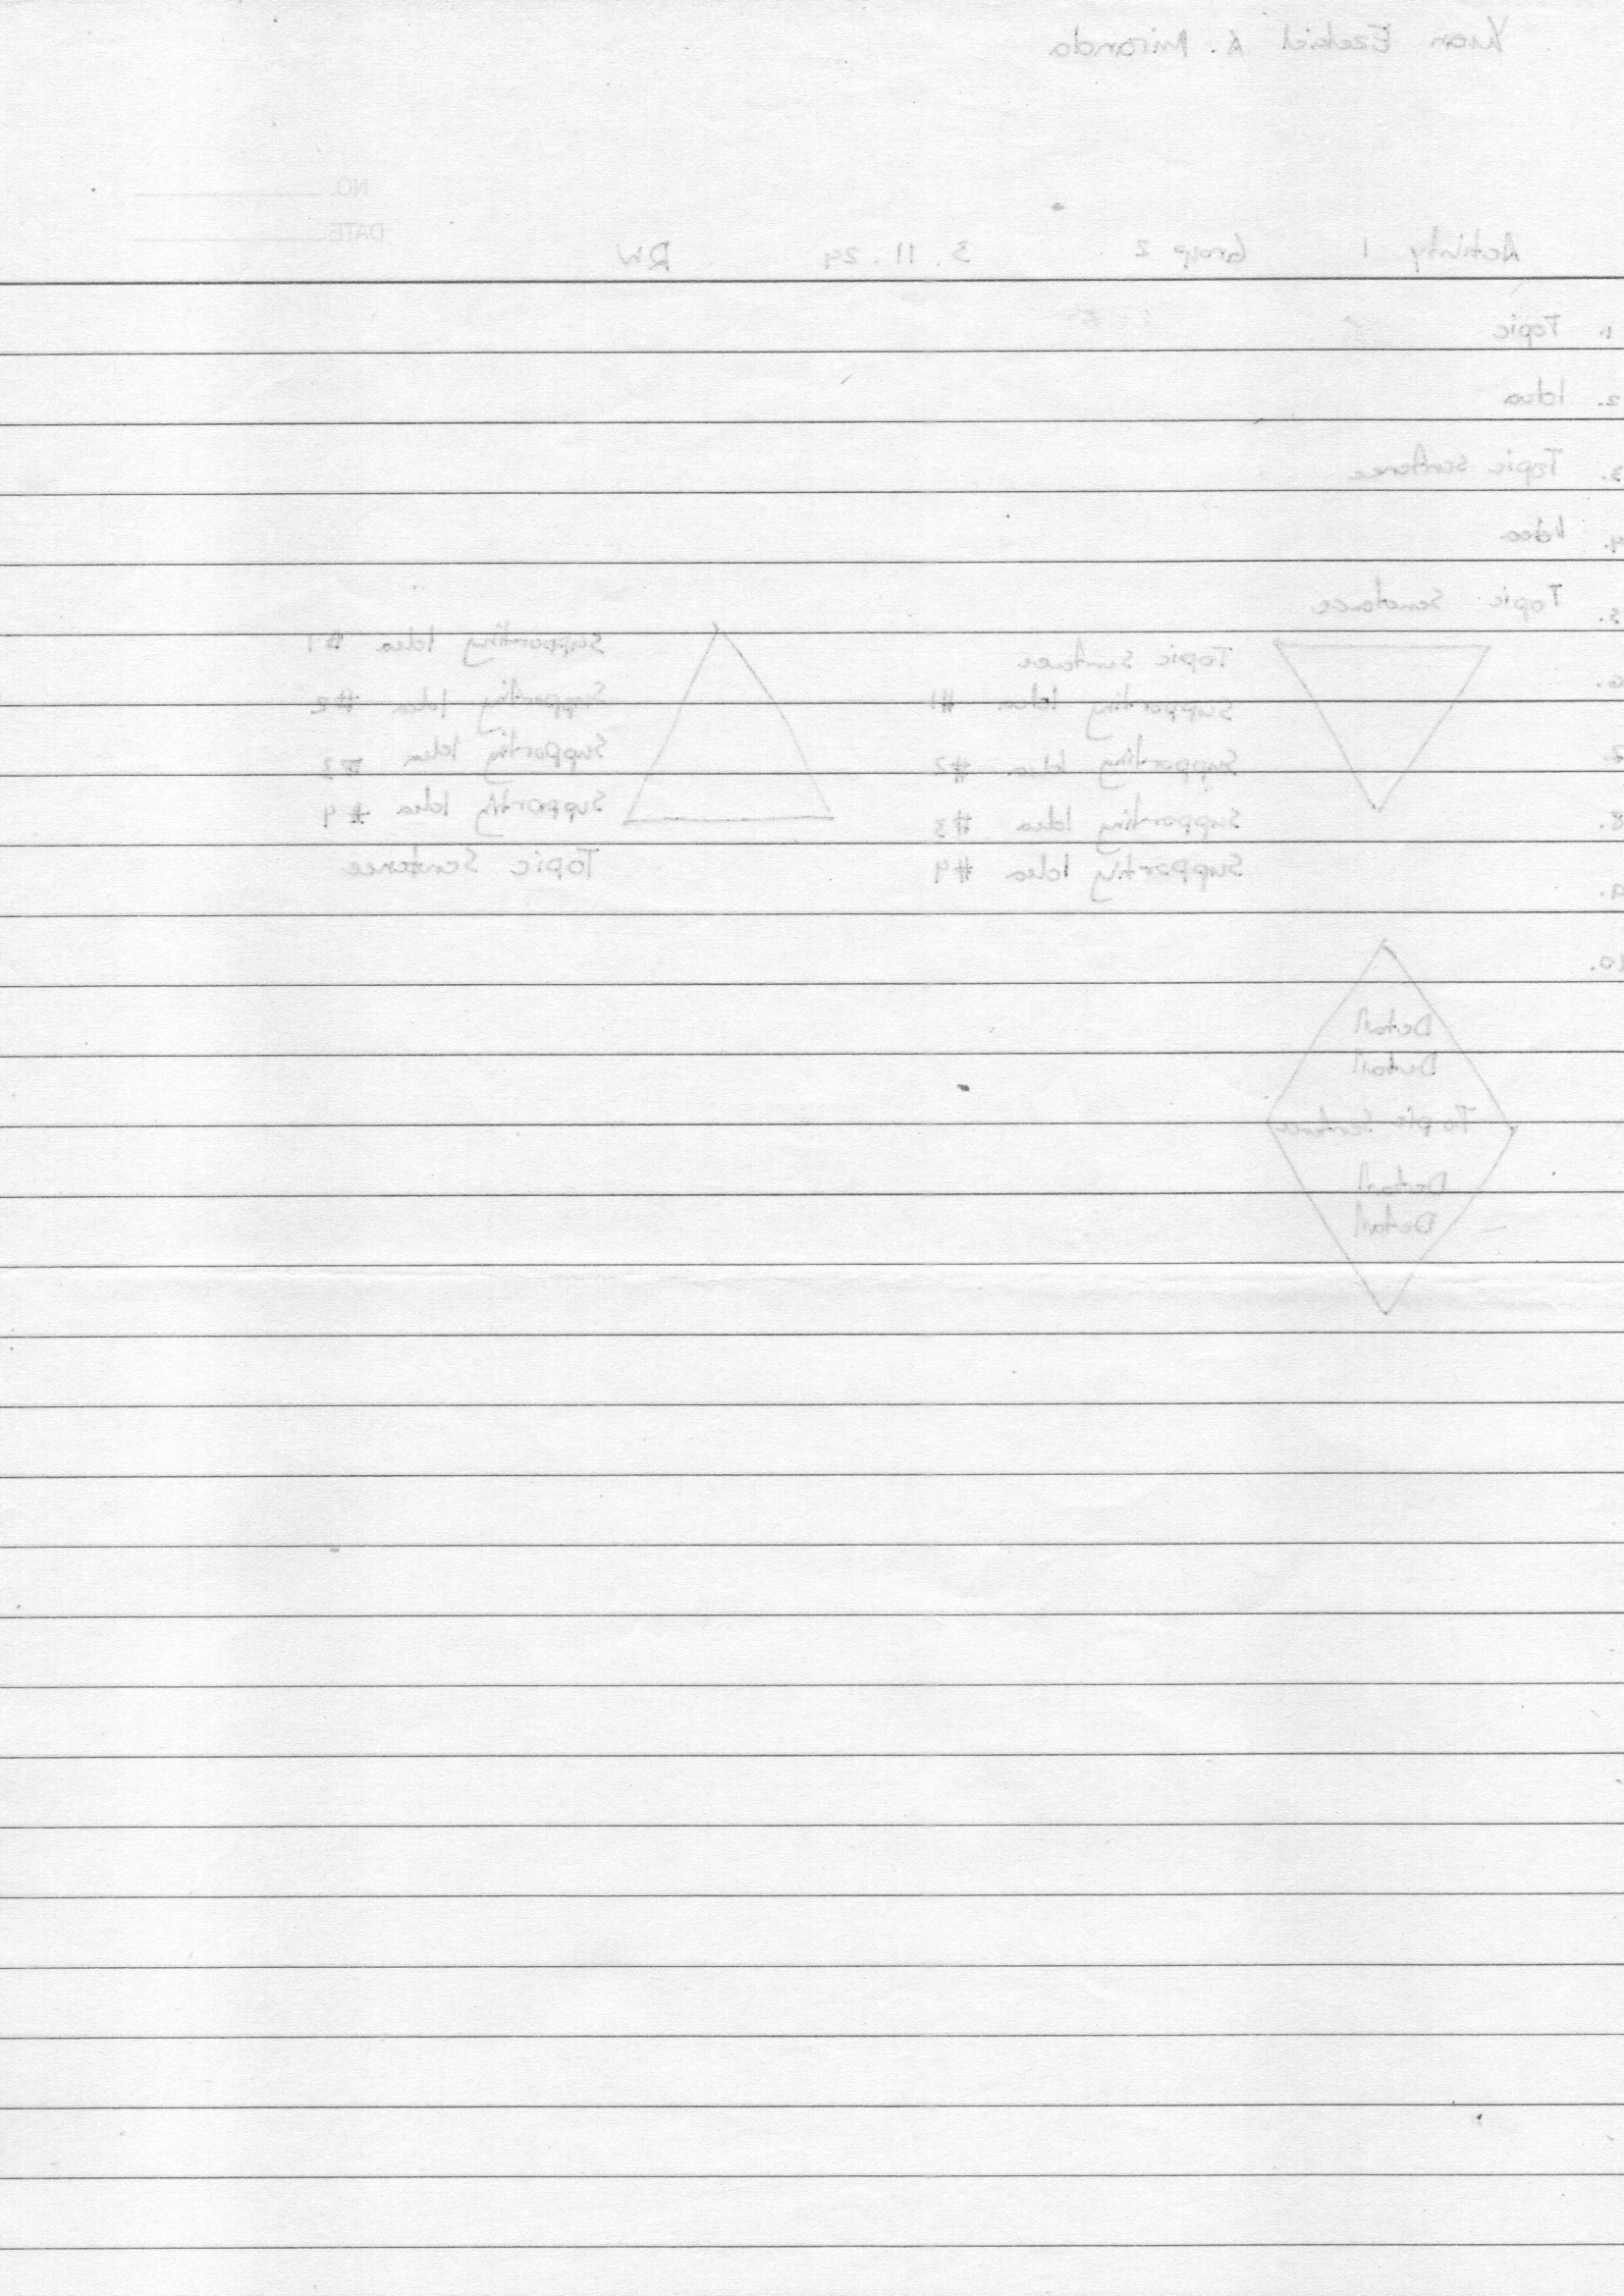 Yuan Ezekiel A. Miranda
NO.
DATE
Activity 1 Group 2 3.11.24 RW
1. Topic
2. Idea
3. Topic sentence
4. Idea
5. Topic Sendence
6.
7.
8.
9.
10.
Topic sentence
Supporting Idea #1
Supporting Idea #2
Supporting Idea #3
Supporting Idea #4
Supporting Idea #1
Supporting Idea #2
Supporting Idea #3
Supporting Idea #4
Topic Sentence
Detail
Detail
Topic sentence
Detail
Detail